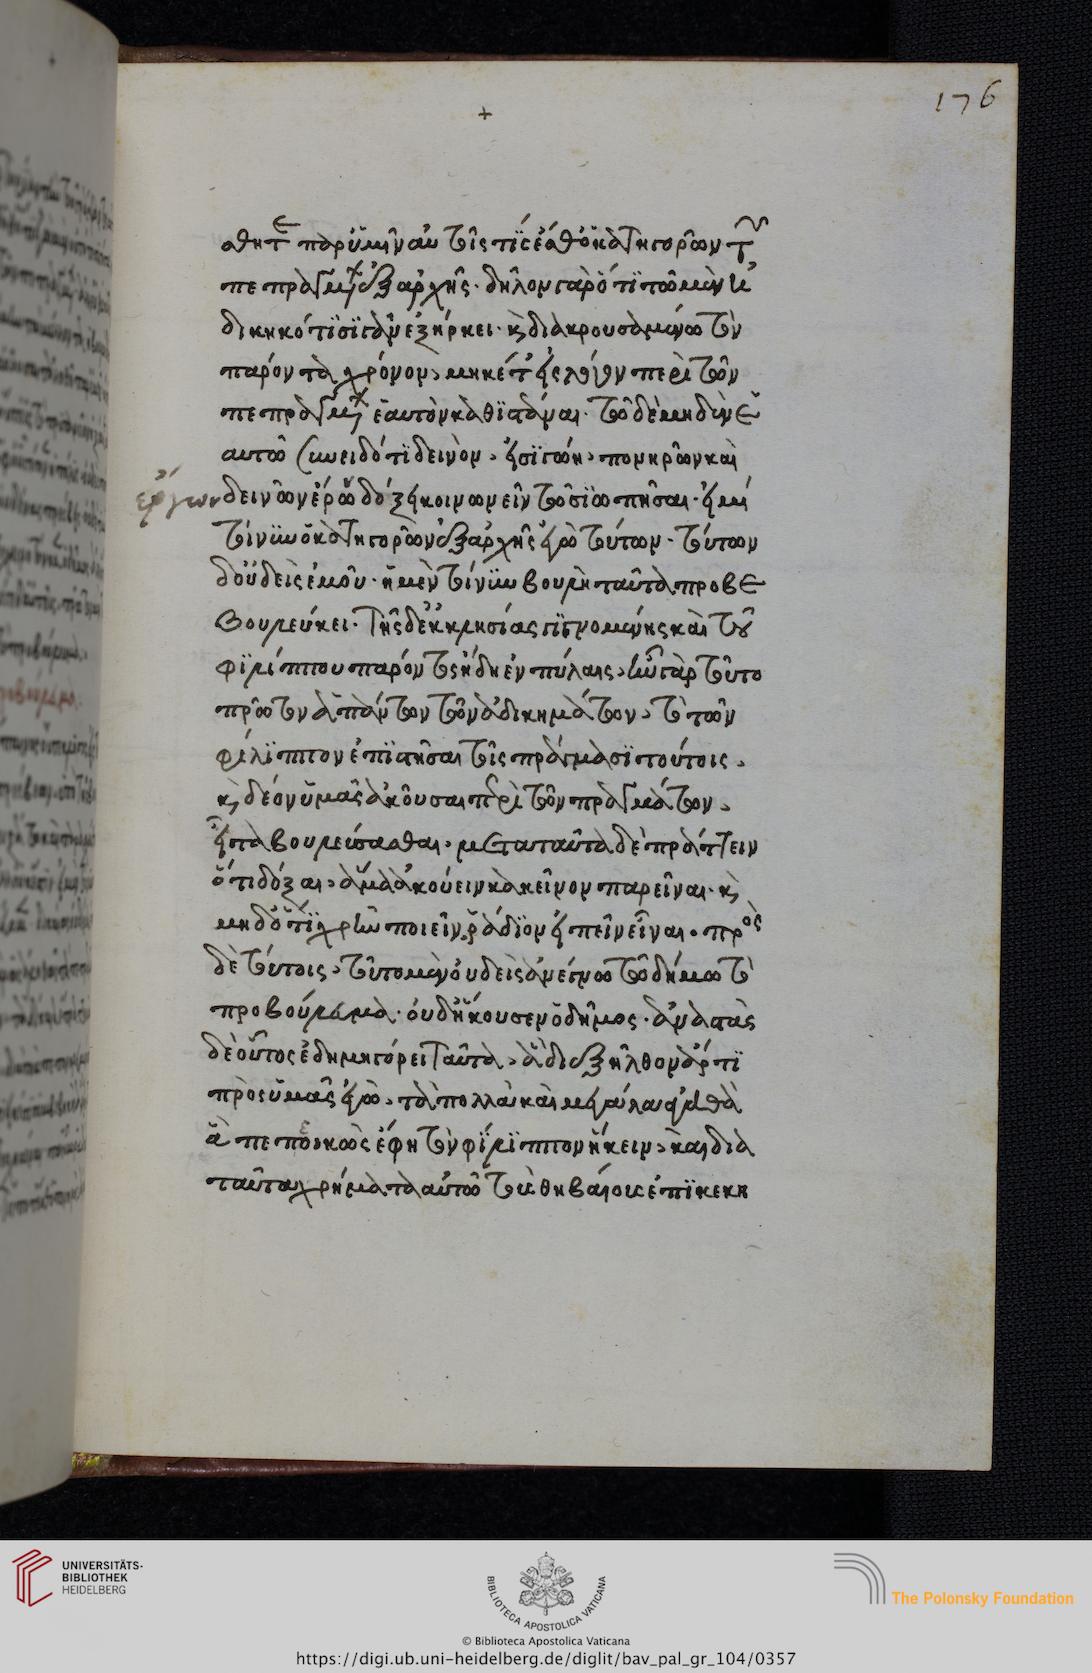 +
176
σθητε παρ' ὑμῖν αὐτοῖς τίς ἐσθ' ὁ κατηγορῶν τῶν
πεπραγμένων ἐξ ἀρχῆς· δῆλον γὰρ ὅτι τῶ μὲν ἠ
δικηκότι σιγᾶν ἐξήρκει· καὶ διακρουσαμένω τὸν
παρόντα χρόνον, μηκέτ' εἰς λόγον περὶ τῶν
πεπραγμένων ἑαυτὸν καθϊστάναι· τῶ δὲ μηδὲν ἑ
αυτῶ συνειδότι δεινὸν, εἰσϊέναι, πονηρῶν καὶ
ἔργων
δεινῶν ἔργων δόξει κοινωνεῖν τῶ σϊωπῆσαι· εἰμὶ
τοίνυν ὁ κατηγορῶν ἐξ ἀρχῆς ἐγὼ τούτων· τούτων
δ' οὐδεὶς ἐμοῦ· ἡ μὲν τοίνυν βουλὴ ταῦτα προβε
βουλεύκει· τῆς δ' ἐκκλησίας γϊγνομένης καὶ τοῦ
φϊλίππου παρόντος ἤδη ἐν πύλαις, ἦν γὰρ τοῦτο
πρῶτον ἁπάντων τῶν ἀδικημάτων, τὸ τὸν
φίλϊππον ἐπϊστῆσαι τοῖς πράγμασϊ τούτοις,
καὶ δέον ὑμᾶς ἀκοῦσαι περὶ τῶν πραγμάτων,
εἶτα βουλεύσασθαι, μετὰ ταῦτα δὲ πράττειν
ὅτι δόξαι, ἅμα ἀκούειν κακεῖνον παρεῖναι· καὶ
μηδ' ὅτϊ χρὴ ποιεῖν ῥάδϊον εἰπεῖν εἶναι· πρὸς
δὲ τούτοις, τοῦτο μὲν οὐδεὶς ἀνέγνω τῶ δήμω τὸ
προβούλευμα· οὐδ' ἤκουσεν ὁ δῆμος· ἀναστὰς
δὲ οὗτος ἐδημηγόρει ταῦτα, ἃ διεξῆλθον ἄρτϊ
πρὸς ὑμᾶς ἐγὼ, τὰ πολλὰ καὶ μεγάλα ἀγαθὰ
ἃ πεποικὼς ἔφη τὸν φίλϊππον ἥκειν, καὶ διὰ
ταῦτα χρήματα αὐτῶ τοὺς θηβαίους ἐπϊκεκη
UNIVERSITÄTS-
BIBLIOTHEK
HEIDELBERG
BIBLIOTECA APOSTOLICA VATICANA
The Polonsky Foundation
© Biblioteca Apostolica Vaticana
https://digi.ub.uni-heidelberg.de/diglit/bav_pal_gr_104/0357